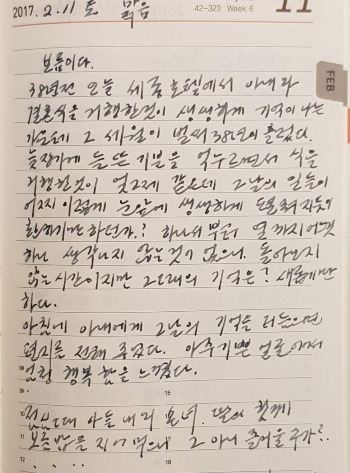 2017. 2. 11 토 맑음
42-323 Week 6
11
FEB
보름이다.
38년전 오늘 세종호텔에서 아내와
결혼식을 거행한것이 생생하게 기억이 나는
가운데 그 세월이 벌써 38년이 흘렀다.
늦장가에 들뜬 기분을 억누르면서 식을
거행한것이 엊그제 같은데 그날의 일들이
어찌 이렇게 눈앞에 생생하게
하나 생각나지 않는것이 없으니. 돌아오지
않는 시간이지만 그때의 기억은? 새롭게만
하다.
아침에 아내에게 그날의 기억을 더듬으면
편지를 전해 주었다. 아주 기쁜 얼굴에서
행복함을 느꼈다.
08
09
15
10
저녁때 아들 내외 손녀. 딸과 함께
11 보름밥을 지어 먹으니 그 아니 즐거울 수가?..
12 . . . . .
18